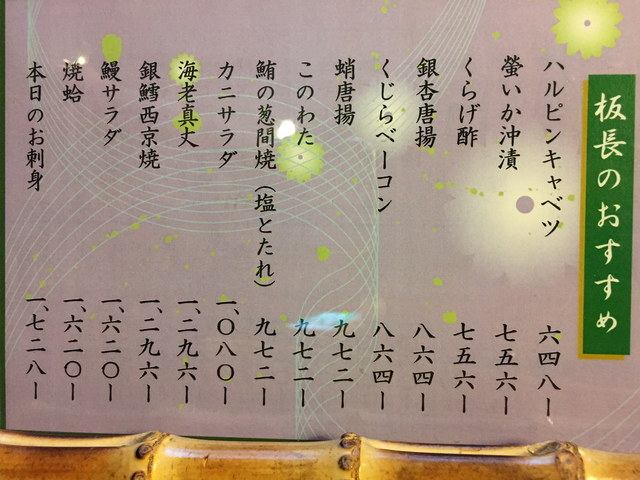 板長のおすすめ
ハルピンキャベツ 六四八ー
螢いか沖漬 七五六ー
くらげ酢 七五六ー
銀杏唐揚 八六四ー
くじらベーコン 八六四ー
蛸唐揚 九七二ー
このわた 九七二ー
鮪の葱間焼（塩とたれ） 九七二ー
カニサラダ 一、〇八〇ー
海老真丈 一、二九六ー
銀鱈西京焼 一、二九六ー
鰻サラダ 一、六二〇ー
焼蛤 一、六二〇ー
本日のお刺身 一、七二八ー